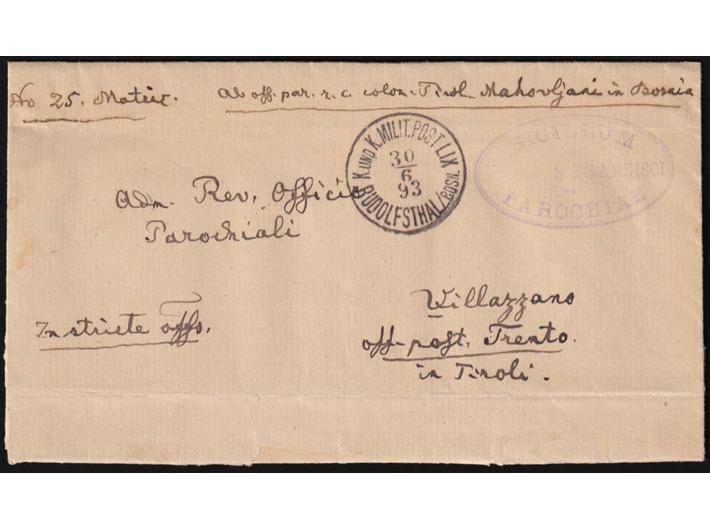 No 25. Matric.
Ab off. par. r. c. colon. Tirol. Mahovljani in Bosnia
K. UND K. MILIT. POST LIX
30
6
93
RUDOLFSTHAL / BOSN.
SIGILLUM
S
PAROCHIAE
Adm. Rev. Officio
Parochiali
Villazzano
In stricte offo.
off-post. Trento.
in Tiroli.